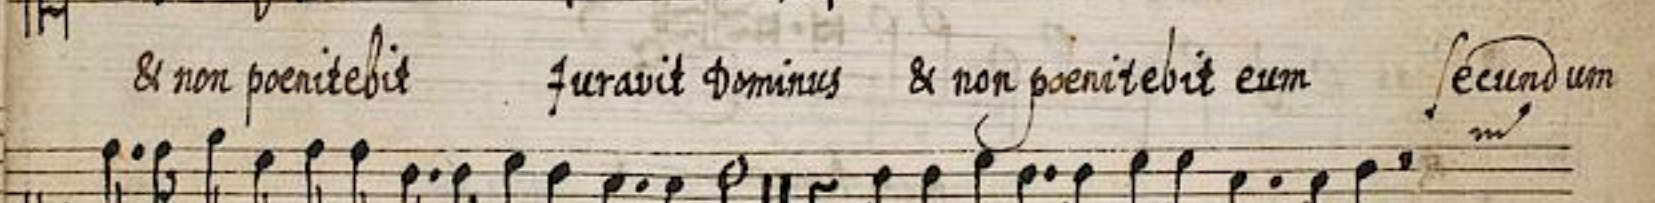 & non poenitebit Juravit Dominus & non poenitebit eum secundum